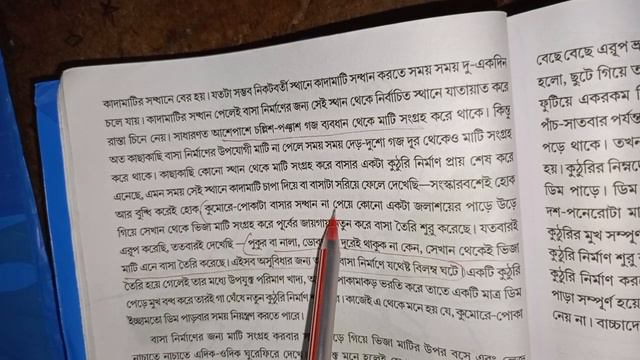 কাদামাটির সন্ধানে বের হয়। যতটা সম্ভব নিকটবর্তী স্থানে কাদামাটি সন্ধান করতে সময় সময় দু-একদিন
চলে যায়। কাদামাটির সন্ধান পেলেই বাসা নির্মাণের জন্য সেই স্থান থেকে নির্বাচিত স্থানে যাতায়াত করে
রাস্তা চিনে নেয়। সাধারণত আশেপাশে চল্লিশ-পঞ্চাশ গজ ব্যবধান থেকে মাটি সংগ্রহ করে থাকে। কিন্তু
অত কাছাকাছি বাসা নির্মাণের উপযোগী মাটি না পেলে সময় সময় দেড়-দুশো গজ দূর থেকেও মাটি সংগ্রহ
করে থাকে। কাছাকাছি কোনো স্থান থেকে মাটি সংগ্রহ করে বাসার একটা কুঠুরি নির্মাণ প্রায় শেষ করে
এনেছে, এমন সময় সেই স্থানে কাদামাটি চাপা দিয়ে বা বাসাটা সরিয়ে ফেলে দেখেছি—সংস্কারবশেই হোক
আর বুদ্ধি করেই হোক, কুমোরে-পোকাটা বাসার সন্ধান না পেয়ে কোনো একটা জলাশয়ের পাড়ে উড়ে
গিয়ে সেখান থেকে ভিজা মাটি সংগ্রহ করে পূর্বের জায়গায় নতুন করে বাসা তৈরি শুরু করেছে। যতবারই
এরূপ করেছি, ততবারই দেখেছি—পুকুর বা নালা, ডোবা দূরেই থাকুক না কেন, সেখান থেকেই ভিজা
মাটি এনে বাসা তৈরি করেছে। এইসব অসুবিধার জন্য বাসা নির্মাণে যথেষ্ট বিলম্ব ঘটে। একটি কুঠুরি
তৈরি হয়ে গেলেই তার মধ্যে উপযুক্ত পরিমাণ খাদ্য, পোকামাকড় ভরতি করে তাতে একটি মাত্র ডিম
পেড়ে মুখ বন্ধ করে তারই গা ঘেঁষে নতুন কুঠুরি নির্মাণ কাজেই এ থেকে মনে হয় যে, কুমোরে-পোকা
ইচ্ছামতো ডিম পাড়বার সময় নিয়ন্ত্রণ করতে পারে।
বাসা নির্মাণের জন্য মাটি সংগ্রহ করবার উড়ে গিয়ে ভিজা মাটির উপর বসে এবং লেজ
নাচাতে নাচাতে এদিক-ওদিক ঘুরেফিরে দেখে মনে হলেই
বেছে বেছে এরূপ
হলো, ছুটে গিয়ে
ফুটিয়ে একরকম
পাঁচ-সাতবার পর্যন্ত
পড়ে থাকে। তখন
হয়। কুঠুরির নিম্ন
ডিম পাড়ে। ডিম
দশ-পনেরোটা মা
কুঠুরির মুখ সম্পূর্ণ
কুঠুরি নির্মাণ শুরু
কুঠুরি নির্মাণ কর
পাড়া সম্পূর্ণ হয়ে
নেয় না। বাচ্চাদে